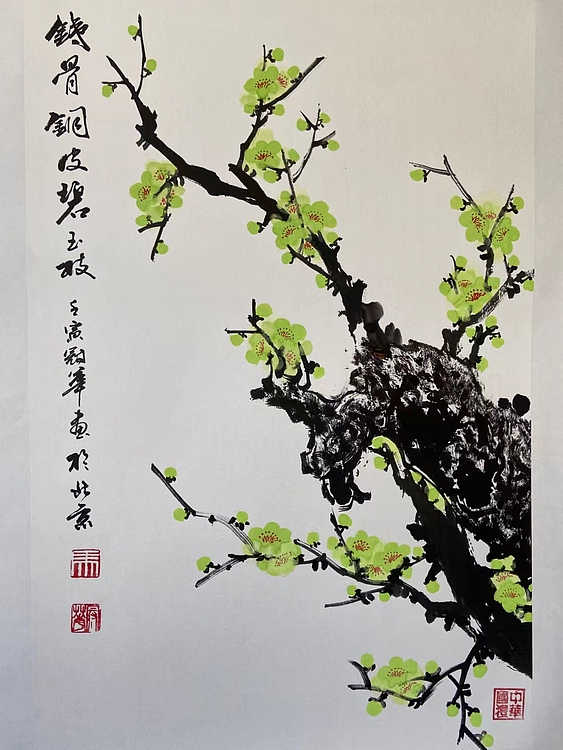 鐵骨銅皮碧玉枝 壬寅華畫於北京
中華國禮